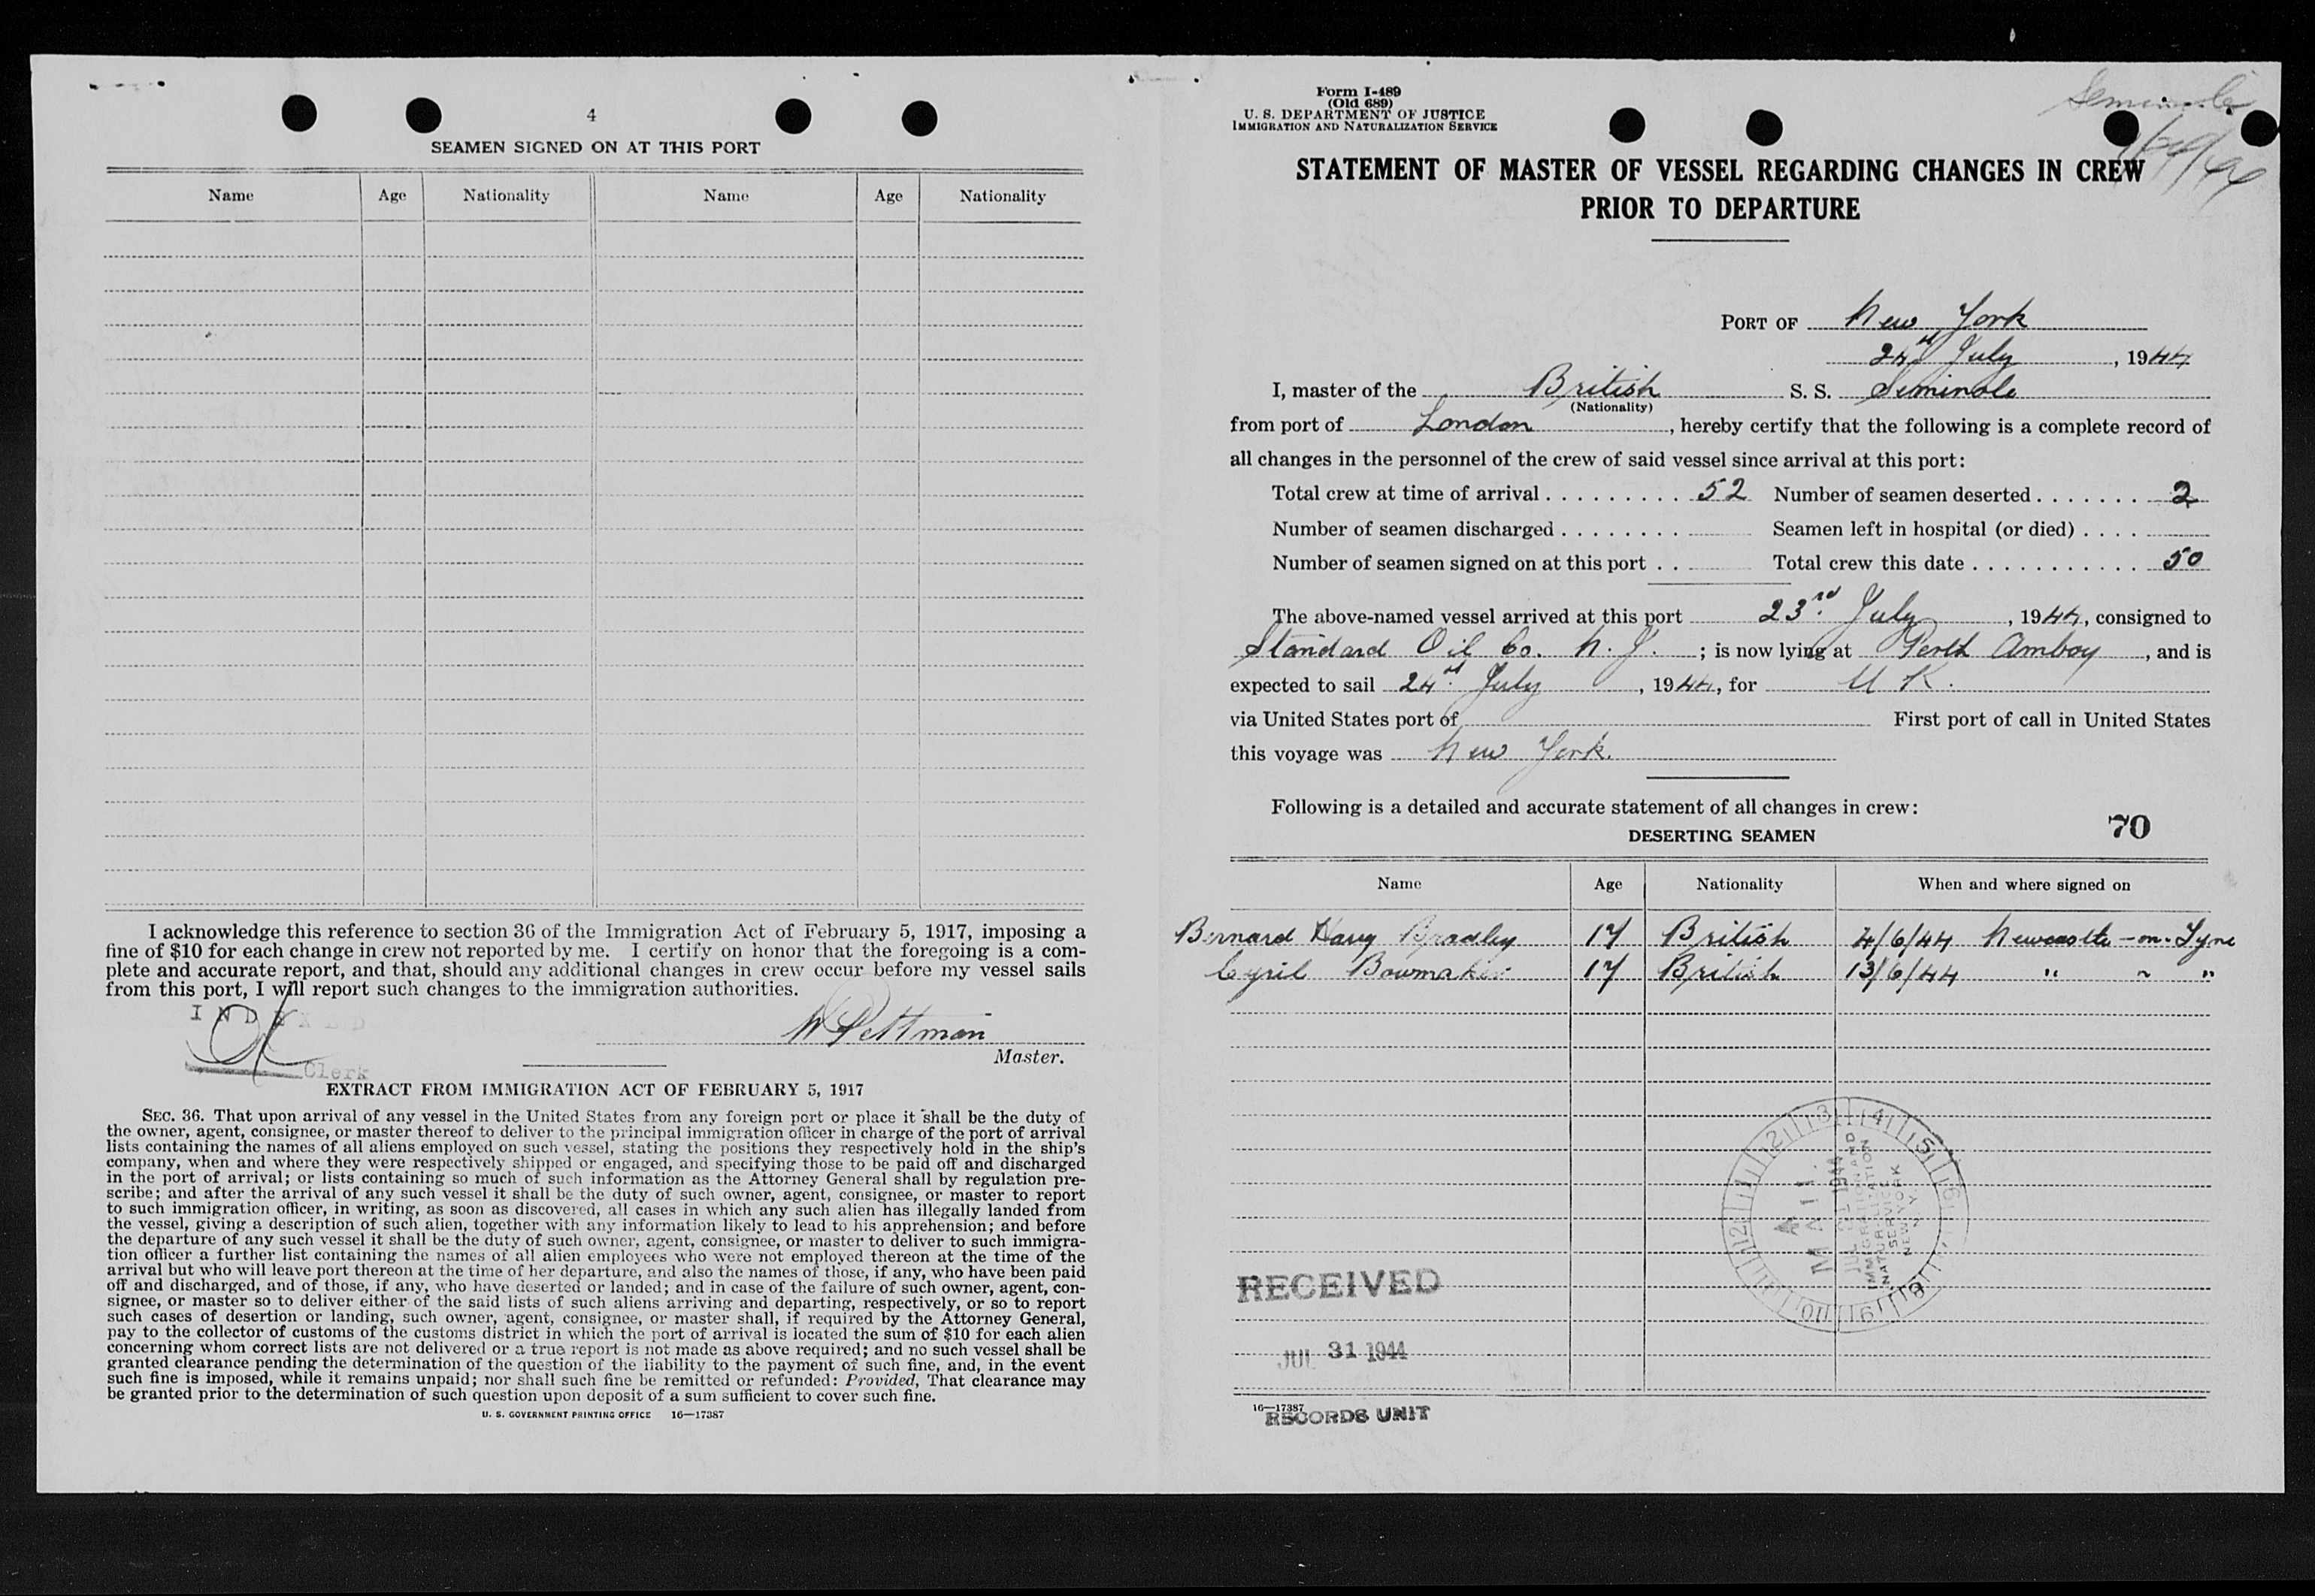 4
SEAMEN SIGNED ON AT THIS PORT
Name Age Nationality Name Age Nationality
I acknowledge this reference to section 36 of the Immigration Act of February 5, 1917, imposing a
fine of $10 for each change in crew not reported by me. I certify on honor that the foregoing is a com-
plete and accurate report, and that, should any additional changes in crew occur before my vessel sails
from this port, I will report such changes to the immigration authorities.
INDEXED
W Pettman
Master.
Clerk
EXTRACT FROM IMMIGRATION ACT OF FEBRUARY 5, 1917
SEC. 36. That upon arrival of any vessel in the United States from any foreign port or place it shall be the duty of
the owner, agent, consignee, or master thereof to deliver to the principal immigration officer in charge of the port of arrival
lists containing the names of all aliens employed on such vessel, stating the positions they respectively hold in the ship's
company, when and where they were respectively shipped or engaged, and specifying those to be paid off and discharged
in the port of arrival; or lists containing so much of such information as the Attorney General shall by regulation pre-
scribe; and after the arrival of any such vessel it shall be the duty of such owner, agent, consignee, or master to report
to such immigration officer, in writing, as soon as discovered, all cases in which any such alien has illegally landed from
the vessel, giving a description of such alien, together with any information likely to lead to his apprehension; and before
the departure of any such vessel it shall be the duty of such owner, agent, consignee, or master to deliver to such immigra-
tion officer a further list containing the names of all alien employees who were not employed thereon at the time of the
arrival but who will leave port thereon at the time of her departure, and also the names of those, if any, who have been paid
off and discharged, and of those, if any, who have deserted or landed; and in case of the failure of such owner, agent, con-
signee, or master so to deliver either of the said lists of such aliens arriving and departing, respectively, or so to report
such cases of desertion or landing, such owner, agent, consignee, or master shall, if required by the Attorney General,
pay to the collector of customs of the customs district in which the port of arrival is located the sum of $10 for each alien
concerning whom correct lists are not delivered or a true report is not made as above required; and no such vessel shall be
granted clearance pending the determination of the question of the liability to the payment of such fine, and, in the event
such fine is imposed, while it remains unpaid; nor shall such fine be remitted or refunded: Provided, That clearance may
be granted prior to the determination of such question upon deposit of a sum sufficient to cover such fine.
U. S. GOVERNMENT PRINTING OFFICE 16—17387
Form I-489
(Old 689)
U. S. DEPARTMENT OF JUSTICE
IMMIGRATION AND NATURALIZATION SERVICE
Seminole
STATEMENT OF MASTER OF VESSEL REGARDING CHANGES IN CREW
PRIOR TO DEPARTURE
PORT OF New York
24 July, 1944
I, master of the British S. S. Seminole
(Nationality)
from port of London, hereby certify that the following is a complete record of
all changes in the personnel of the crew of said vessel since arrival at this port:
Total crew at time of arrival . . . . . . . . . 52 Number of seamen deserted . . . . . . . 2
Number of seamen discharged . . . . . . . . Seamen left in hospital (or died) . . . .
Number of seamen signed on at this port . . Total crew this date . . . . . . . . . . . 50
The above-named vessel arrived at this port 23rd July, 1944, consigned to
Standard Oil Co. N. J. ; is now lying at Perth Amboy, and is
expected to sail 24 July, 1944, for U K.
via United States port of First port of call in United States
this voyage was New York.
Following is a detailed and accurate statement of all changes in crew:
DESERTING SEAMEN 70
Name Age Nationality When and where signed on
Bernard Harry Bradley 17 British 4/6/44 Newcastle-on-Tyne
Cyril Bowmaker 17 British 13/6/44 " ~ "
1 2 3 4 5 6 8 9 10 11 12
A
MAIL
1944
IMMIGRATION AND
NATURALIZATION
SERVICE
NEW YORK
N Y
RECEIVED
JUL 31 1944
16—17387
RECORDS UNIT